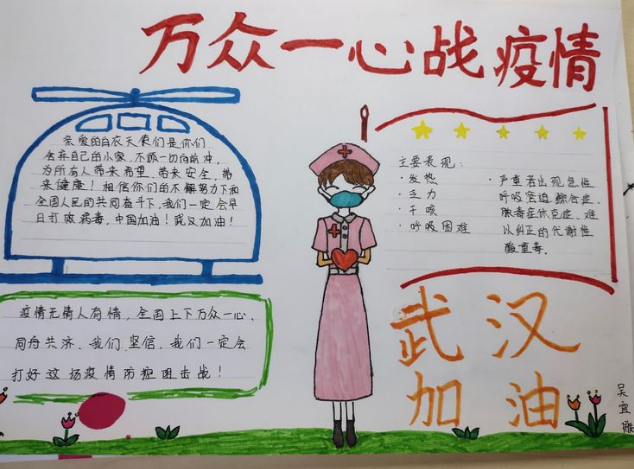 万众一心战疫情
亲爱的白衣天使们是你们
舍弃自己的小家,不顾一切向前冲,
为所有人带来希望,带来安全,带
来健康!相信你们的不懈努力下和
全国人民的共同奋斗下,我们一定会早
日打败病毒,中国加油!武汉加油!
疫情无情人有情,全国上下万众一心,
同舟共济,我们坚信,我们一定会
打好这场疫情防控阻击战!
主要表现:
·发热
·乏力
·干咳
·呼吸困难
·严重者出现急性
呼吸窘迫综合症、
脓毒症休克症、难
以纠正的代谢性
酸重毒.
武汉
加油
吴宜